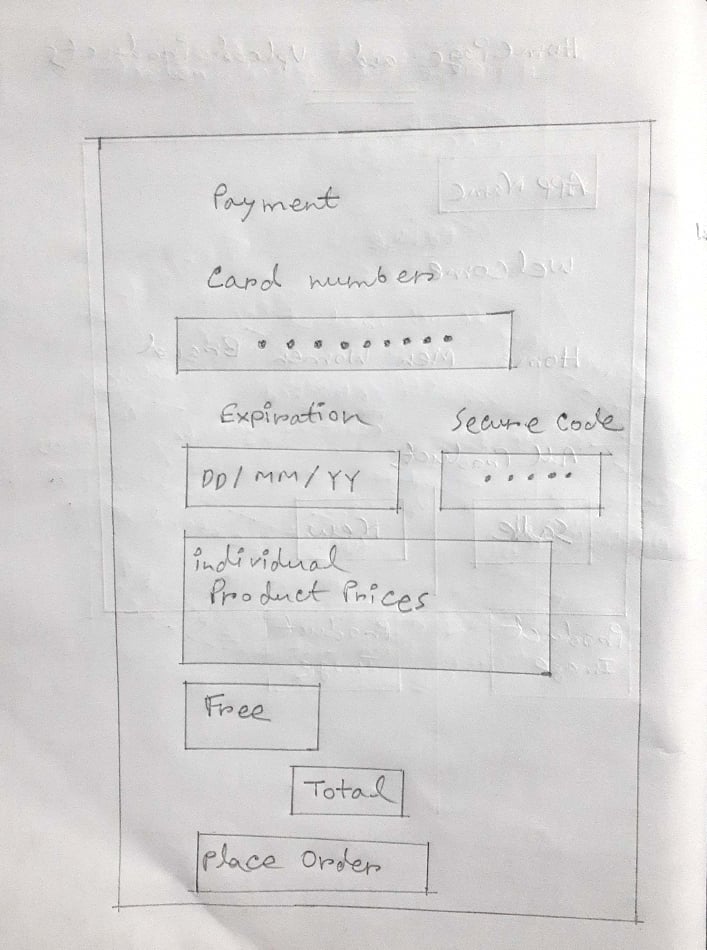 Payment
Card numbers
• • • • • • • • •
Expiration
Secure Code
DD/MM/YY
• • • • •
individual
Product Prices
Free
Total
Place Order